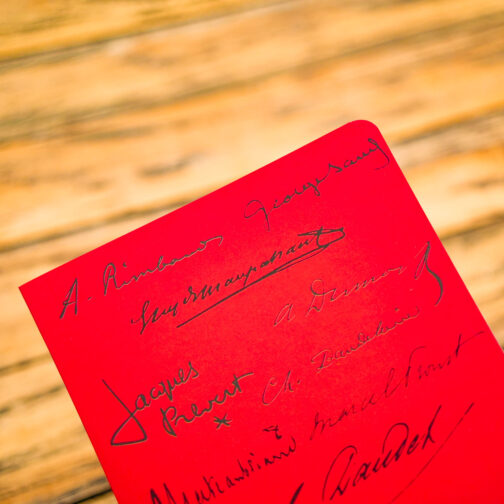 A. Rimbaud George Sand
Guy de Maupassant
A Dumas
Jacques
Prévert
Ch. Baudelaire
Chateaubriand Marcel Proust
A. Daudet